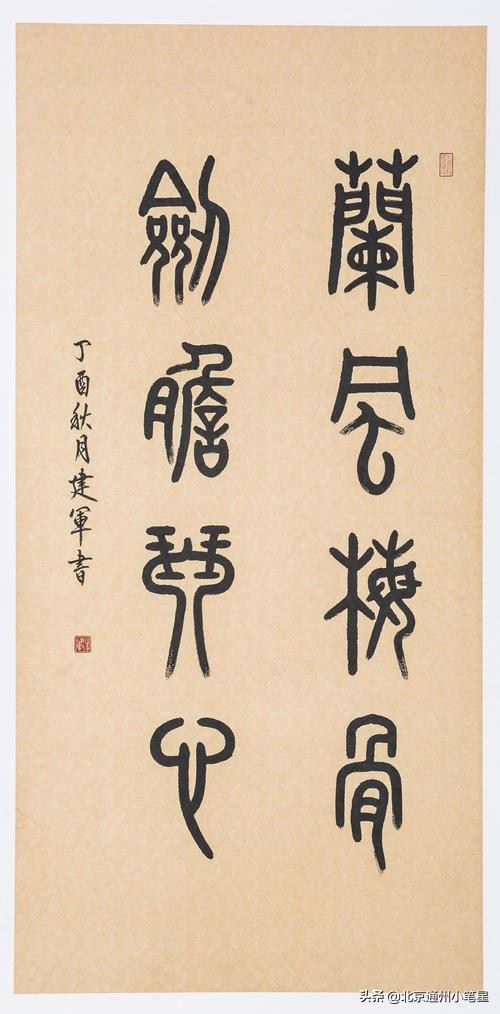 蘭風梅骨
劍膽琴心
丁酉秋月建軍書
头条 @北京通州小笔星